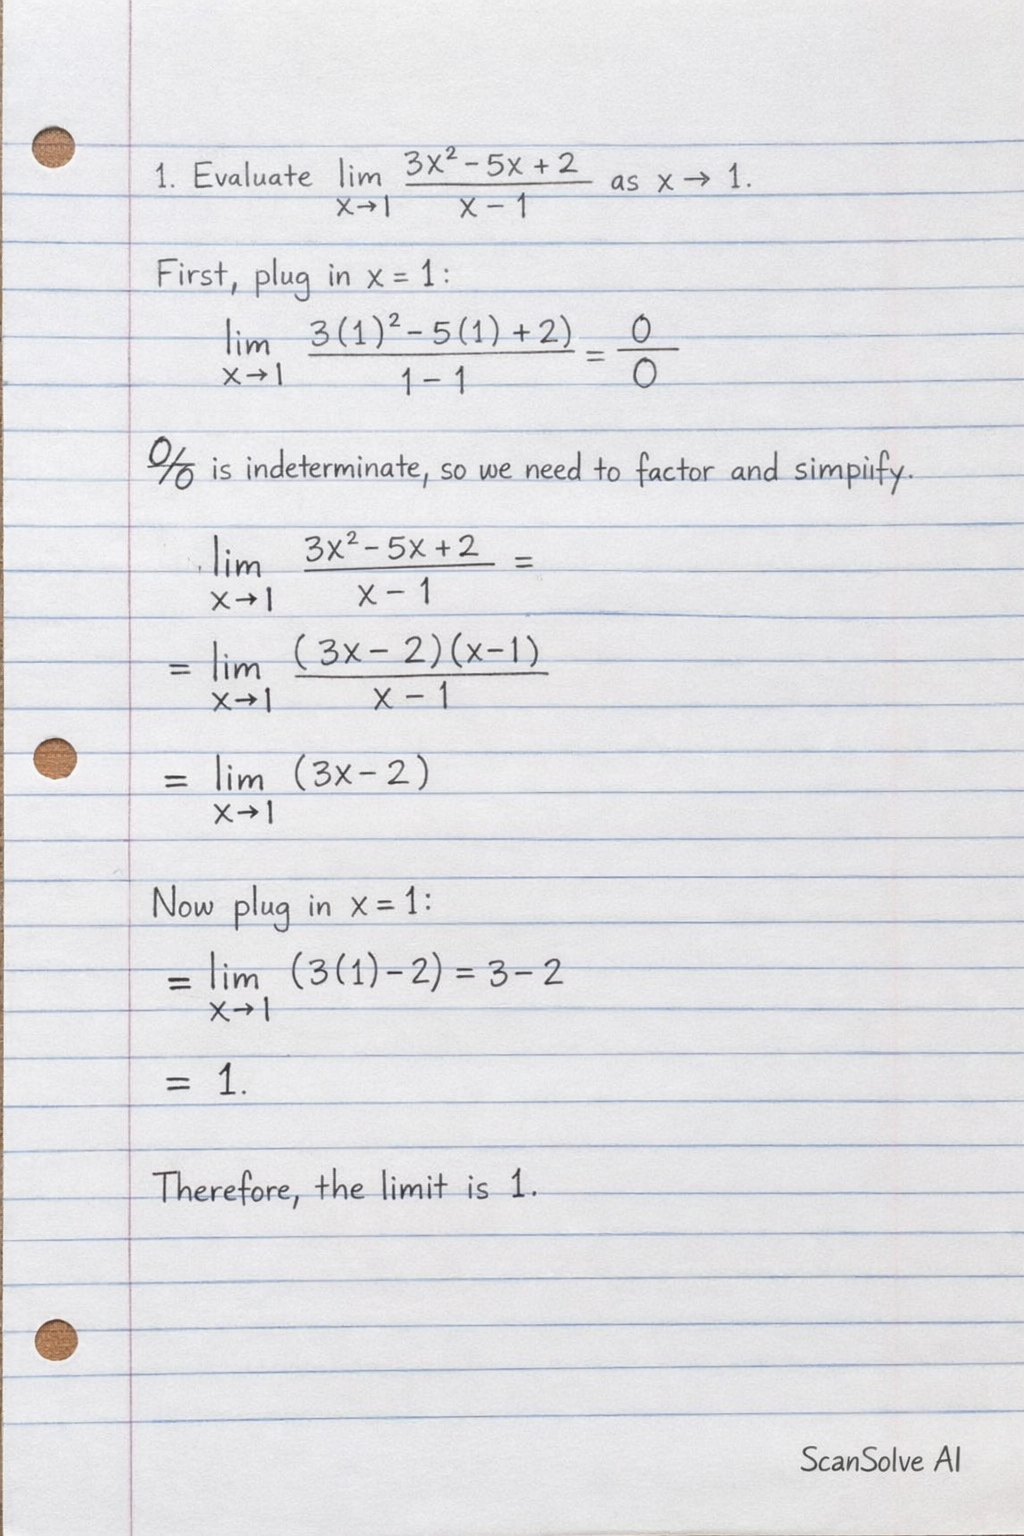 1. Evaluate lim x→1 (3x² - 5x + 2)/(x - 1) as x → 1.
First, plug in x = 1:
lim x→1 (3(1)² - 5(1) + 2))/(1 - 1) = 0/0
0/0 is indeterminate, so we need to factor and simpiify.
lim x→1 (3x² - 5x + 2)/(x - 1) =
= lim x→1 ((3x - 2)(x-1))/(x - 1)
= lim x→1 (3x - 2)
Now plug in x = 1:
= lim x→1 (3(1) - 2) = 3 - 2
= 1.
Therefore, the limit is 1.
ScanSolve AI